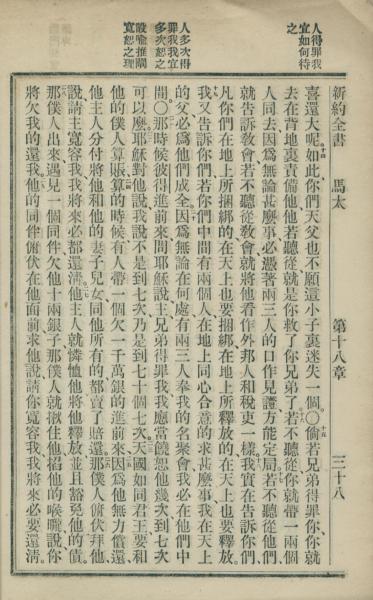 人得罪我
宜如何待
之
人多次得
罪我我宜
多次恕之
設喻推闡
寬恕之理
新約全書　馬太　第十八章　三十八
喜還大呢如此你們天父也不願這小子裏迷失一個〇倘若兄弟得罪你你就
去在背地裏責備他他若聽從就是你救了你兄弟了若不聽從你就帶一兩個
人同去因爲無論甚麼事必憑著兩三人的口作見證方能定局若不聽從他們
就告訴教會若不聽從教會就將他看作外邦人和稅吏一樣我實在告訴你們
凡你們在地上所捆綁的在天上也要捆綁在地上所釋放的在天上也要釋放
我又告訴你們若你們中間有兩個人在地上同心合意的求甚麼事我在天上
的父必爲他們成全因爲無論在何處有兩三人奉我的名聚會我必在他們中
間〇那時候彼得進前來問耶穌說主兄弟得罪我我應當饒恕他幾次到七次
可以麼耶穌對他說我說不是到七次乃是到七十個七次天國如同君王要和
他的僕人算賬算的時候有人帶一個欠一千萬銀的進前來因爲他無力償還
他主人分付將他和他的妻子兒女同他所有的都賣了賠還那僕人俯伏拜他
說請主寬容我我將來必都還淸他主人就憐恤他將他釋放並且豁免他的債
那僕人出來遇見一個同伴欠他十兩銀子那僕人就揪住他搯他的喉嚨說你
將欠我的還我他的同伴俯伏在他面前求他說請你寬容我我將來必要還淸